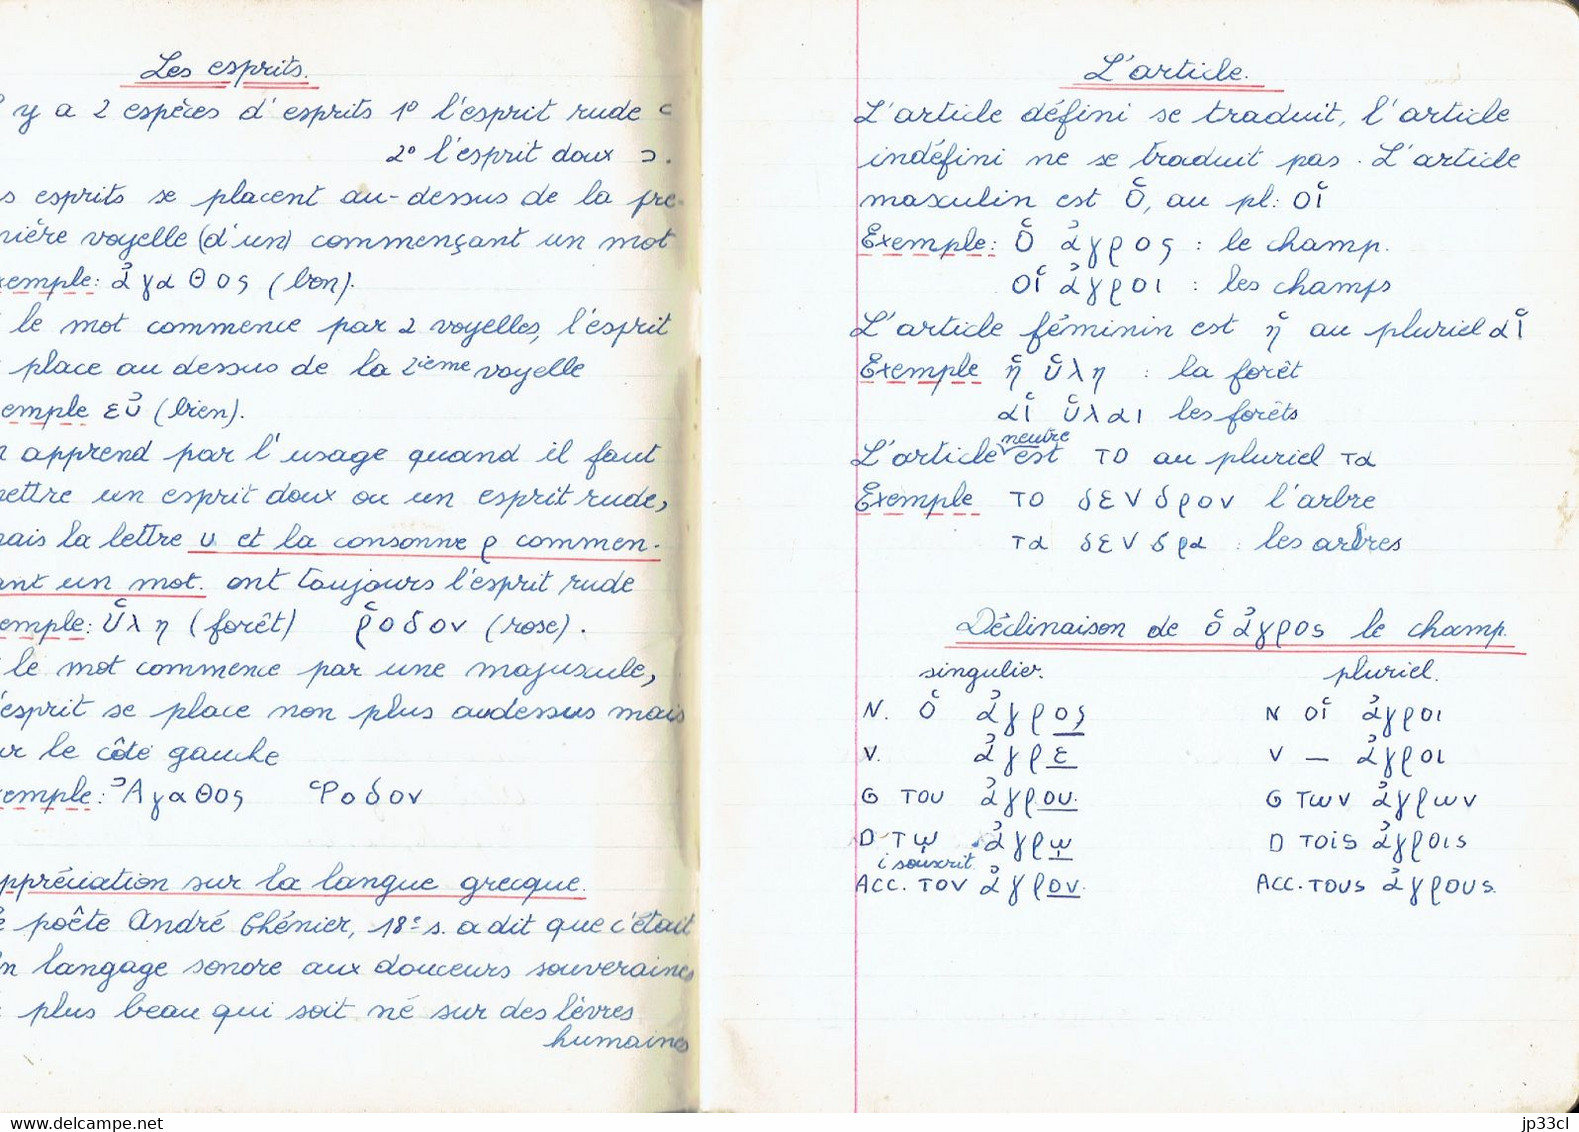 Les esprits.
y a 2 espèces d'esprits 1° l'esprit rude ʿ
2° l'esprit doux ʾ.
s esprits se placent au-dessus de la pre-
mière voyelle (d'un) commençant un mot
exemple: ἀγαθος (bon).
le mot commence par 2 voyelles, l'esprit
place au dessus de la 2ième voyelle
exemple εὐ (bien).
n apprend par l'usage quand il faut
mettre un esprit doux ou un esprit rude,
mais la lettre υ et la consonne ρ commen-
çant un mot. ont toujours l'esprit rude
exemple: ὑλη (forêt) ῥοδον (rose).
le mot commence par une majuscule,
l'esprit se place non plus audessus mais
sur le côté gauche
exemple: Ἀγαθος Ῥοδον
Appréciation sur la langue grecque.
Le poête André Chénier, 18e s. a dit que c'était
un langage sonore aux douceurs souveraines
plus beau qui soit né sur des lèvres
humaines
L'article.
L'article défini se traduit, l'article
indéfini ne se traduit pas. L'article
masculin est ὁ, au pl: οἱ
Exemple: ὁ ἀγρος : le champ.
οἱ ἀγροι : les champs
L'article féminin est ἡ au pluriel αἱ
Exemple ἡ ὑλη : la forêt
αἱ ὑλαι les forêts
L'article neutre est το au pluriel τα
Exemple το δενδρον l'arbre
τα δενδρα : les arbres
Déclinaison de ὁ ἀγρος le champ.
singulier. pluriel.
N. ὁ ἀγρος N οἱ ἀγροι
V. ἀγρε V — ἀγροι
G του ἀγρου. G των ἀγρων
D τῳ ἀγρῳ D τοις ἀγροις
i souscrit
ACC. τον ἀγρον. ACC. τους ἀγρους.
www.delcampe.net jp33cl